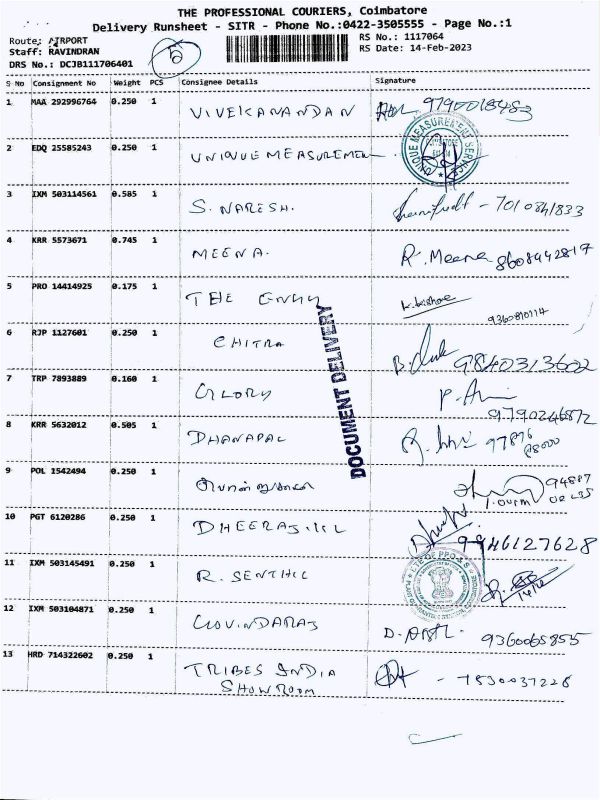 THE PROFESSIONAL COURIERS, Coimbatore
Delivery Runsheet - SITR - Phone No.:0422-3505555 - Page No.:1
Route: AIRPORT
Staff: RAVINDRAN
DRS No.: DCJB111706401
RS No.: 1117064
RS Date: 14-Feb-2023
S No Consignment No Weight PCS Consignee Details Signature
1 MAA 292996764 0.250 1 VIVEKANANDAN
2 EDQ 25585243 0.250 1 UNIQUE MEASUREMEN
UNIQUE MEASUREMENT SERVICES
3 IXM 503114561 0.585 1 S. NARESH. - 7010841833
4 KRR 5573671 0.745 1 MEENA. R. Meena 8608442817
5 PRO 14414925 0.175 1 THE k. kishore
9360810114
6 RJP 1127601 0.250 1 CHITRA 9840313602
7 TRP 7893889 0.160 1 GLORY
9790246872
8 KRR 5632012 0.505 1 DHANAPAL
9 POL 1542494 0.250 1
10 PGT 6120286 0.250 1 9946127628
11 IXM 503145491 0.250 1 R. SENTHIL
12 IXM 503104871 0.250 1 GOVINDARAJ 9360065855
13 HRD 714322602 0.250 1 TRIBES INDIA
SHOWROOM
DOCUMENT DELIVERY